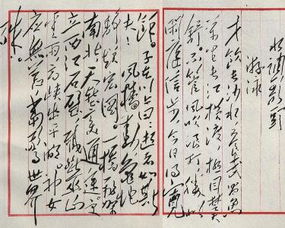 水调歌头
游泳
才饮长沙水，又食武昌鱼。
万里长江横渡，极目楚天
舒。不管风吹浪打，胜似
闲庭信步，今日得宽
馀。子在川上曰：逝者如斯
夫！风樯动，龟蛇
静，起宏图。一桥飞架
南北，天堑变通途。更
立西江石壁，截断巫山
云雨，高峡出平湖。神女
应无恙，当惊世界
殊。